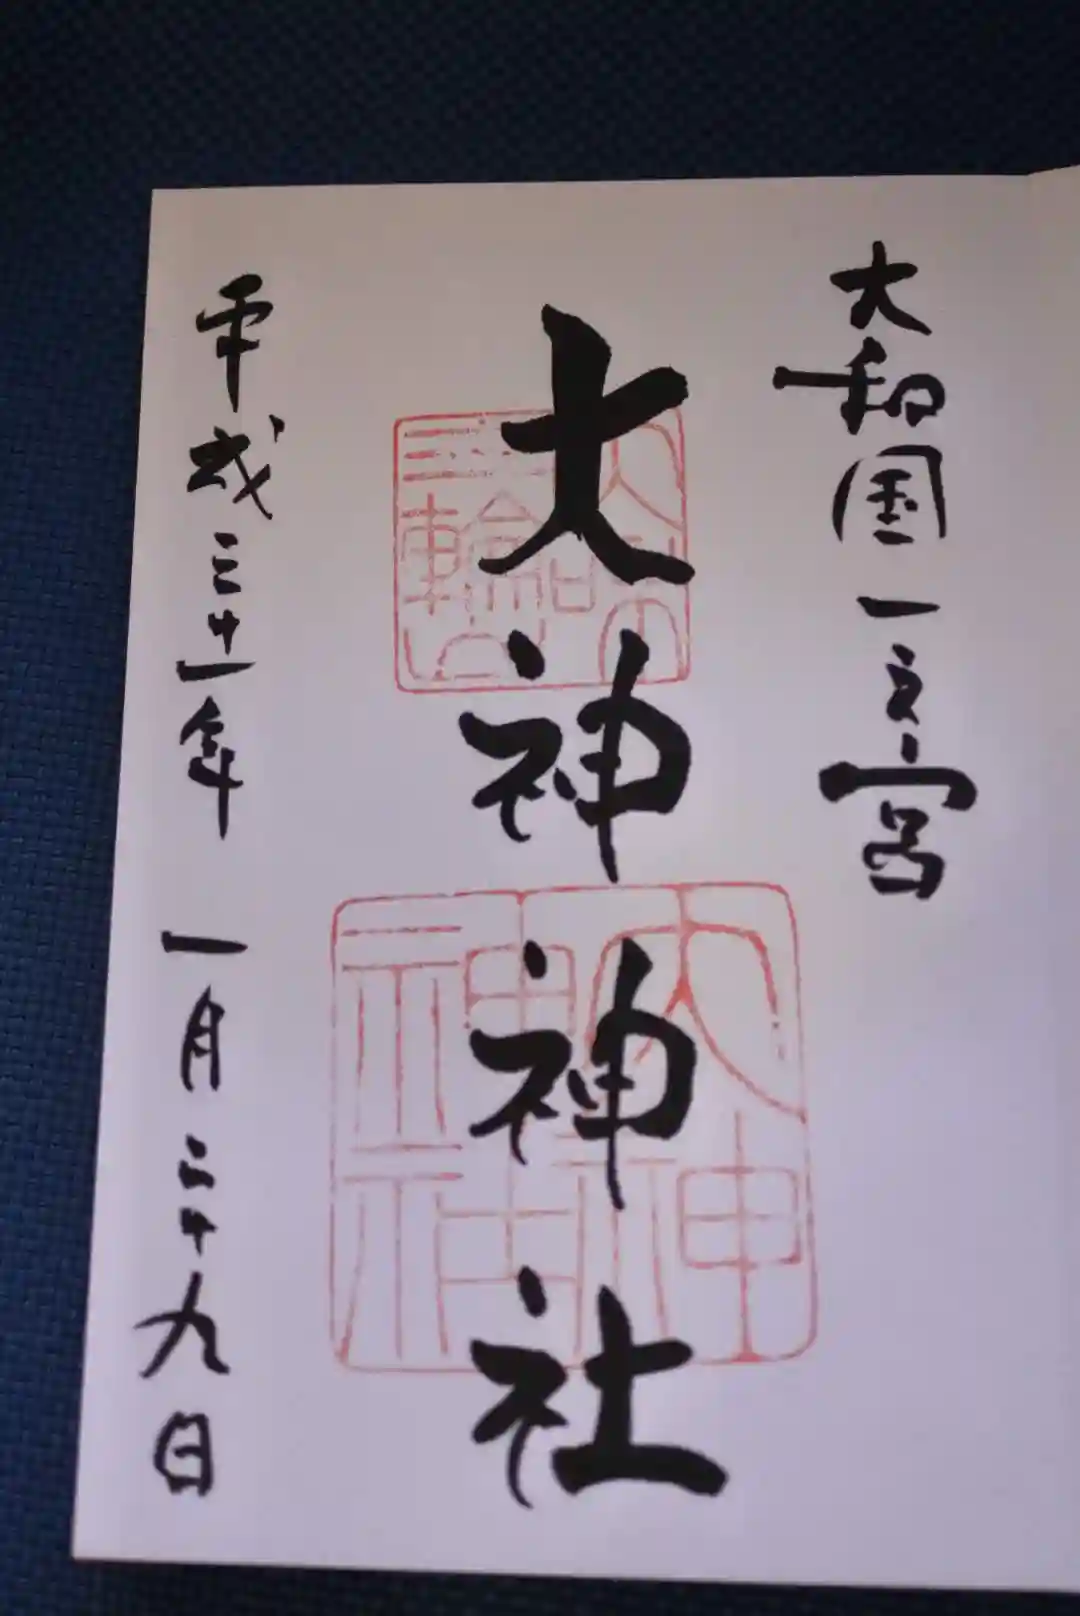 大和国一之宮
大神神社
平成三十一年 一月二十九日
大神
神社